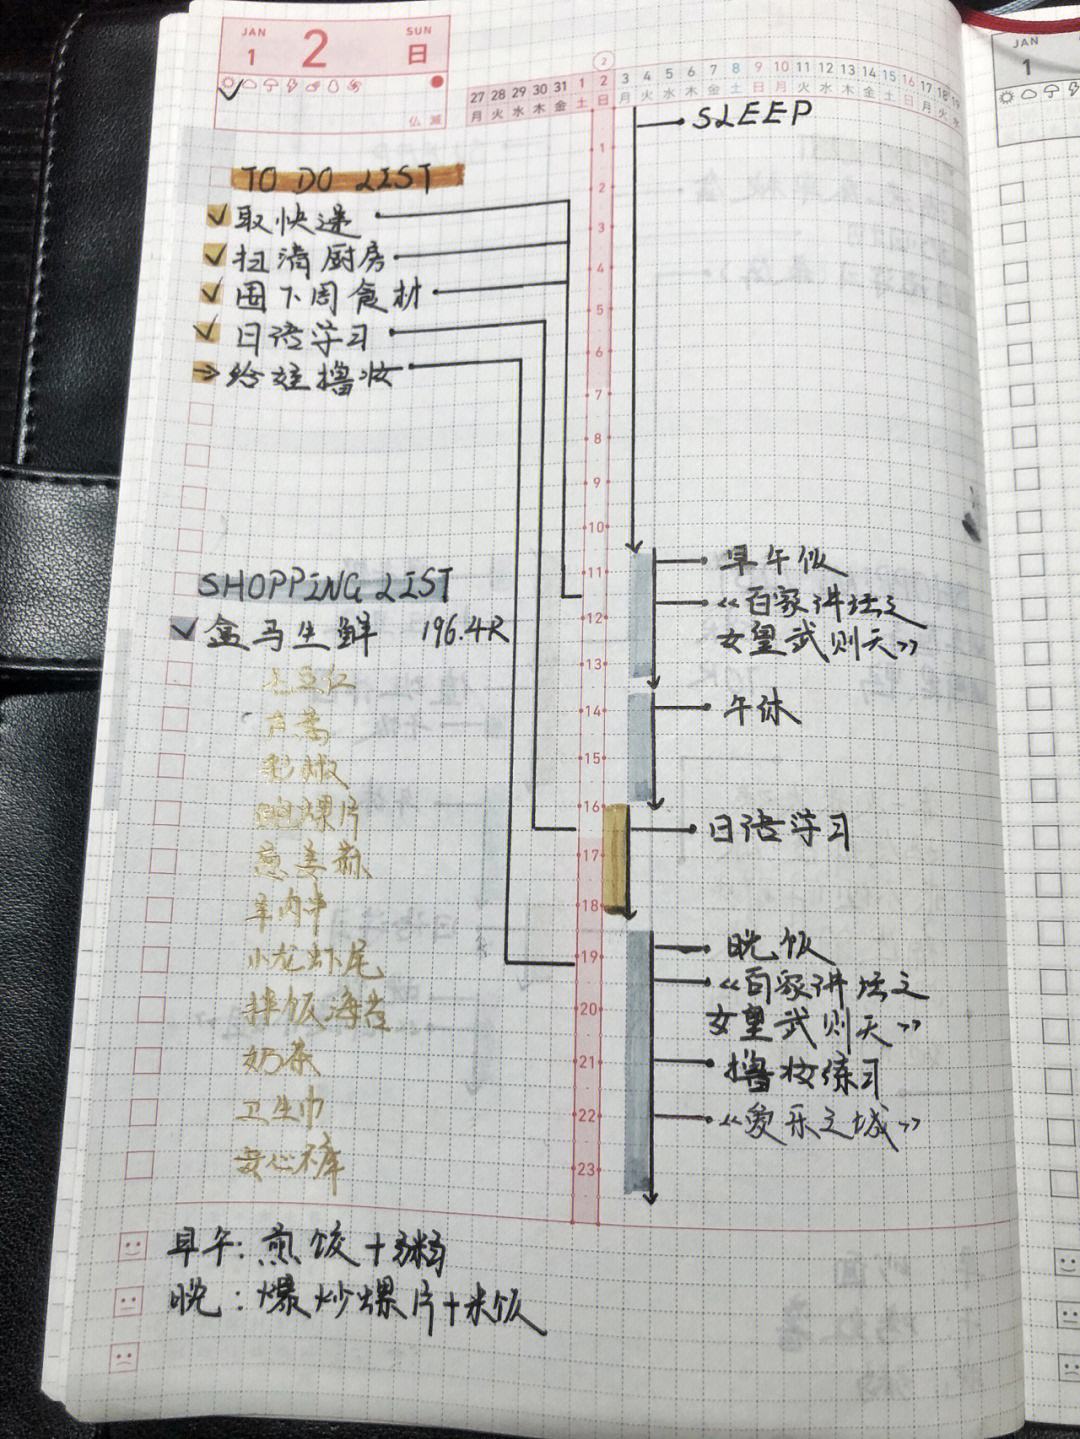 JAN 1 2 SUN 日
仏滅
27 28 29 30 31 1 2 3 4 5 6 7 8 9 10 11 12 13 14 15 16 17 18 19
月 火 水 木 金 土 日 月 火 水 木 金 土 日 月 火 水 木 金 土 日 月 火 水
2
JAN
1
SLEEP
TO DO LIST
取快递
扫清厨房
囤下周食材
日语学习
给娃撸妆
SHOPPING LIST
盒马生鲜 196.4R
土豆仁
彩椒
鲍螺片
葱姜蒜
小龙虾尾
拌饭海苔
奶茶
卫生巾
安心裤
1
2
3
4
5
6
7
8
9
10
11
12
13
14
15
16
17
18
19
20
21
22
23
早午饭
《百家讲坛之
女皇武则天》
午休
日语学习
晚饭
《百家讲坛之
女皇武则天》
撸妆练习
《爱乐之城》
早午: 煎饺+粥
晚: 爆炒螺片+米饭